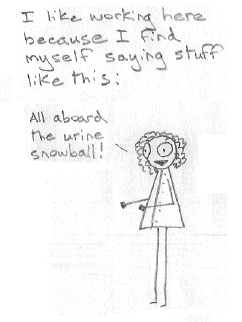 I like working here
because I find
myself saying stuff
like this:
All aboard
the urine
snowball!